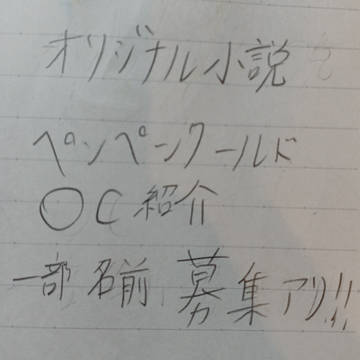 オリジナル小説
ペンペンワールド
○C紹介
一部名前募集アリ!!